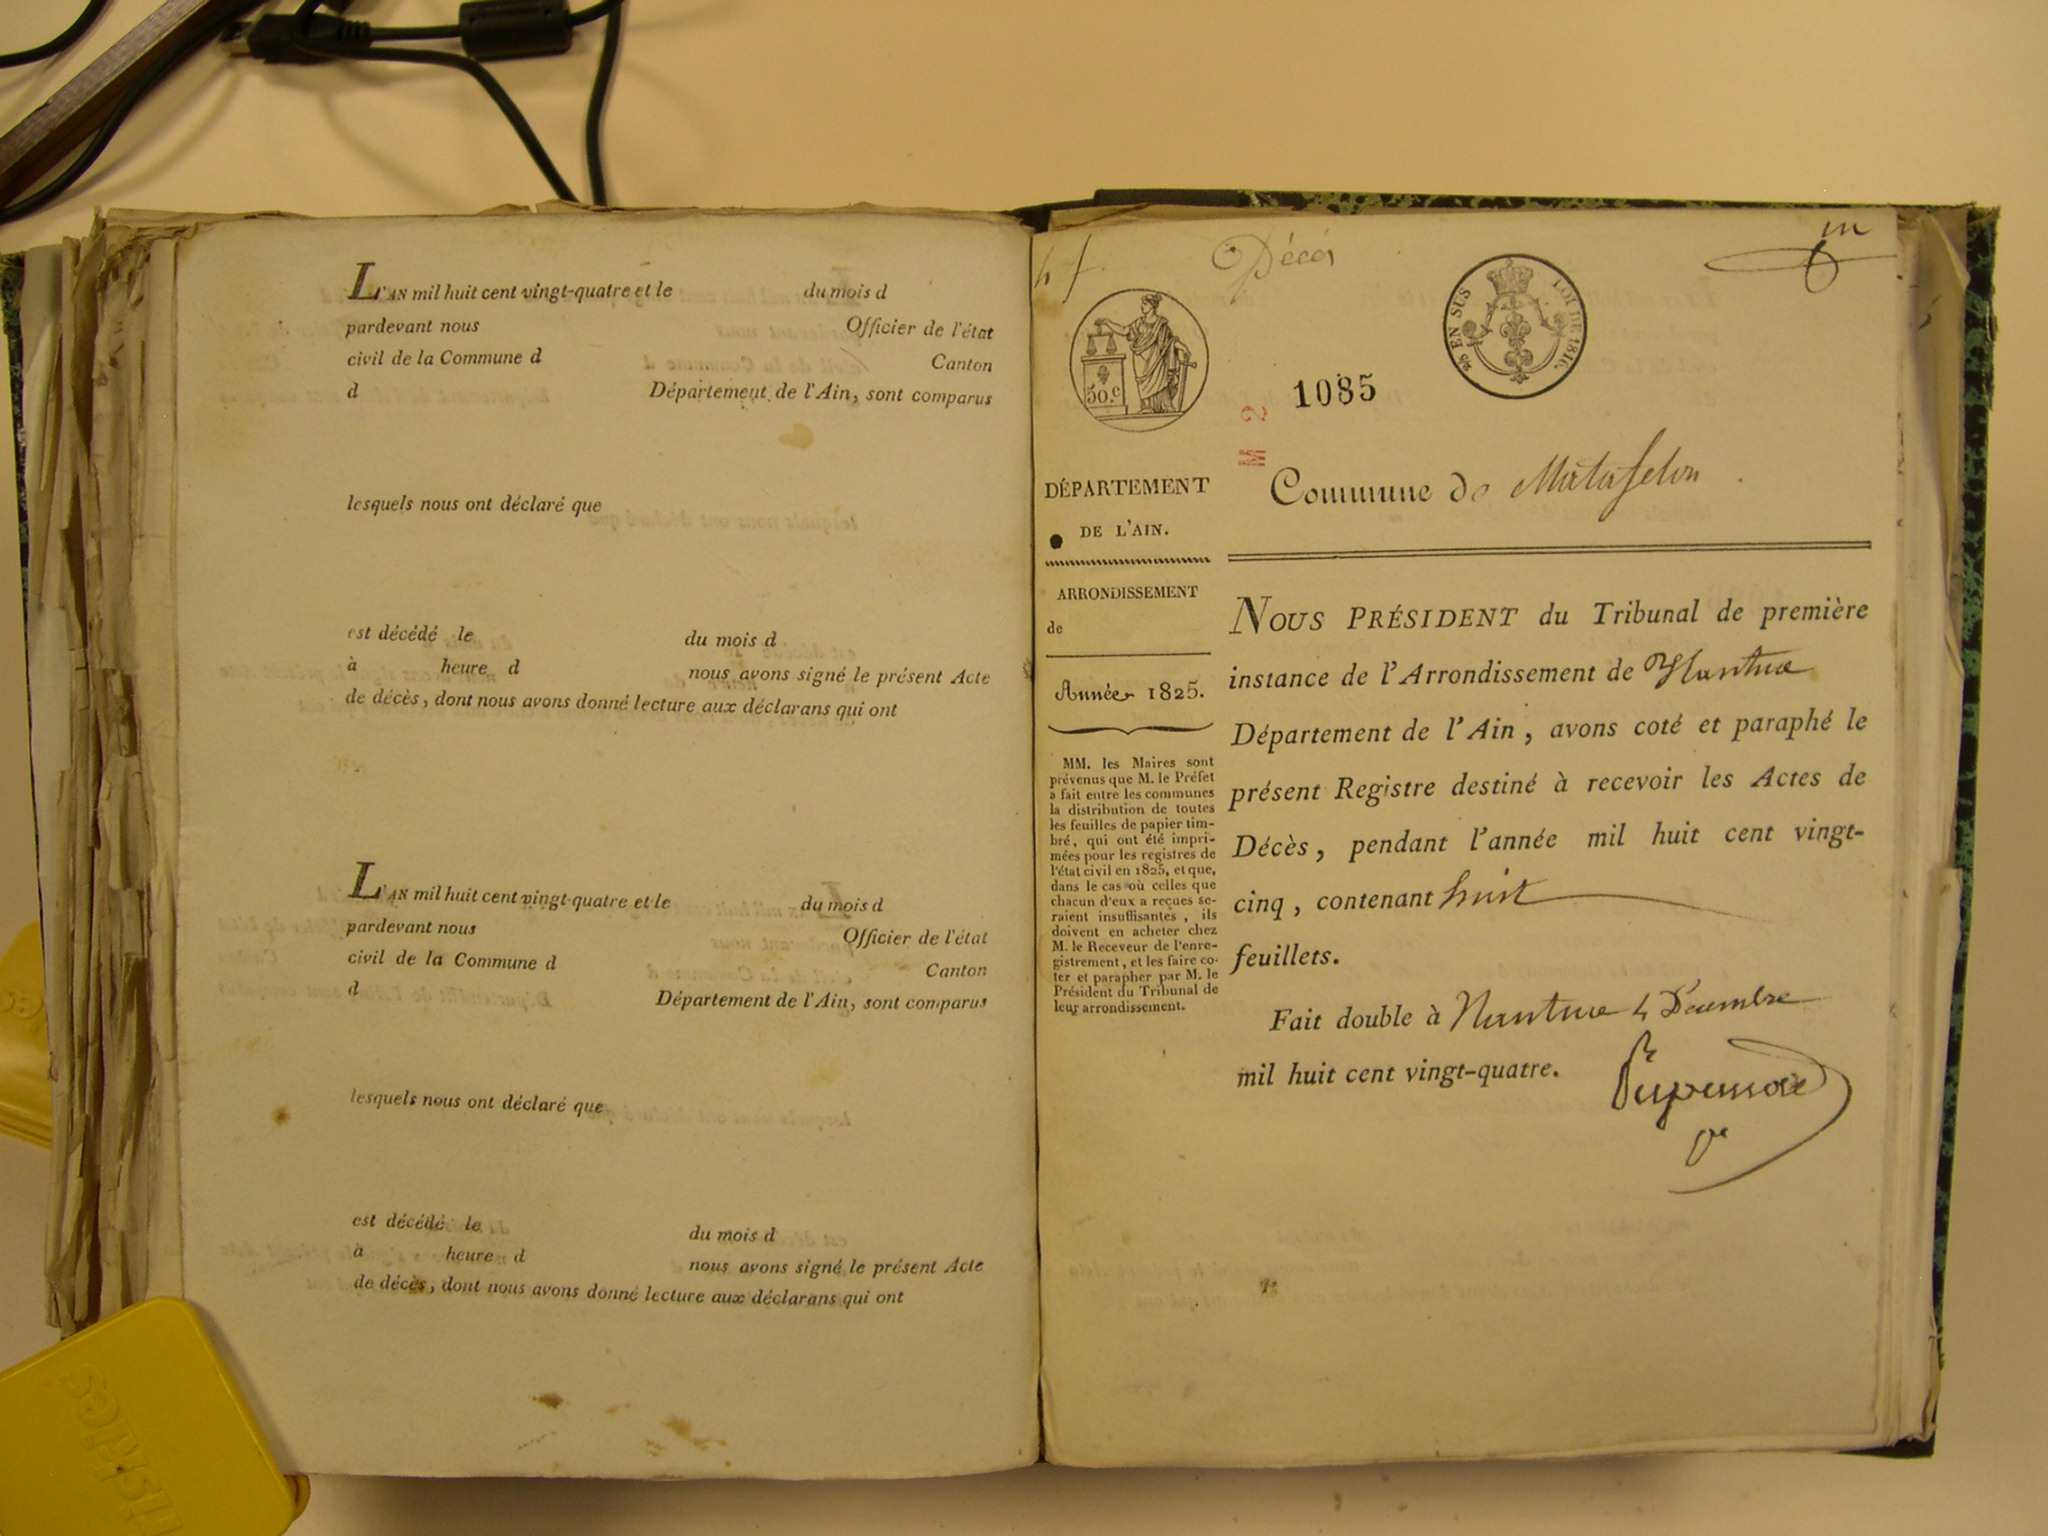 L'AN mil huit cent vingt-quatre et le du mois d
pardevant nous Officier de l'état
civil de la Commune d Canton
d Département de l'Ain, sont comparus
lesquels nous ont déclaré que
est décédé le du mois d
à heure d nous avons signé le présent Acte
de décès, dont nous avons donné lecture aux déclarans qui ont
L'AN mil huit cent vingt-quatre et le du mois d
pardevant nous Officier de l'état
civil de la Commune d Canton
d Département de l'Ain, sont comparus
lesquels nous ont déclaré que
est décédé le du mois d
à heure d nous avons signé le présent Acte
de décès, dont nous avons donné lecture aux déclarans qui ont
Décès
50.c
EN SUS LOI DE 1816.
1085
M 2
Commune de Matafelon
DÉPARTEMENT
DE L'AIN.
ARRONDISSEMENT
de
Année 1825.
MM. les Maires sont
prévenus que M. le Préfet
a fait entre les communes
la distribution de toutes
les feuilles de papier tim-
bré, qui ont été impri-
mées pour les registres de
l'état civil en 1825, et que,
dans le cas où celles que
chacun d'eux a reçues se-
raient insuffisantes, ils
doivent en acheter chez
M. le Receveur de l'enre-
gistrement, et les faire co-
ter et parapher par M. le
Président du Tribunal de
leur arrondissement.
NOUS PRÉSIDENT du Tribunal de première
instance de l'Arrondissement de Nantua
Département de l'Ain, avons coté et paraphé le
présent Registre destiné à recevoir les Actes de
Décès, pendant l'année mil huit cent vingt-
cinq, contenant huit
feuillets.
Fait double à Nantua 4 Décembre
mil huit cent vingt-quatre.